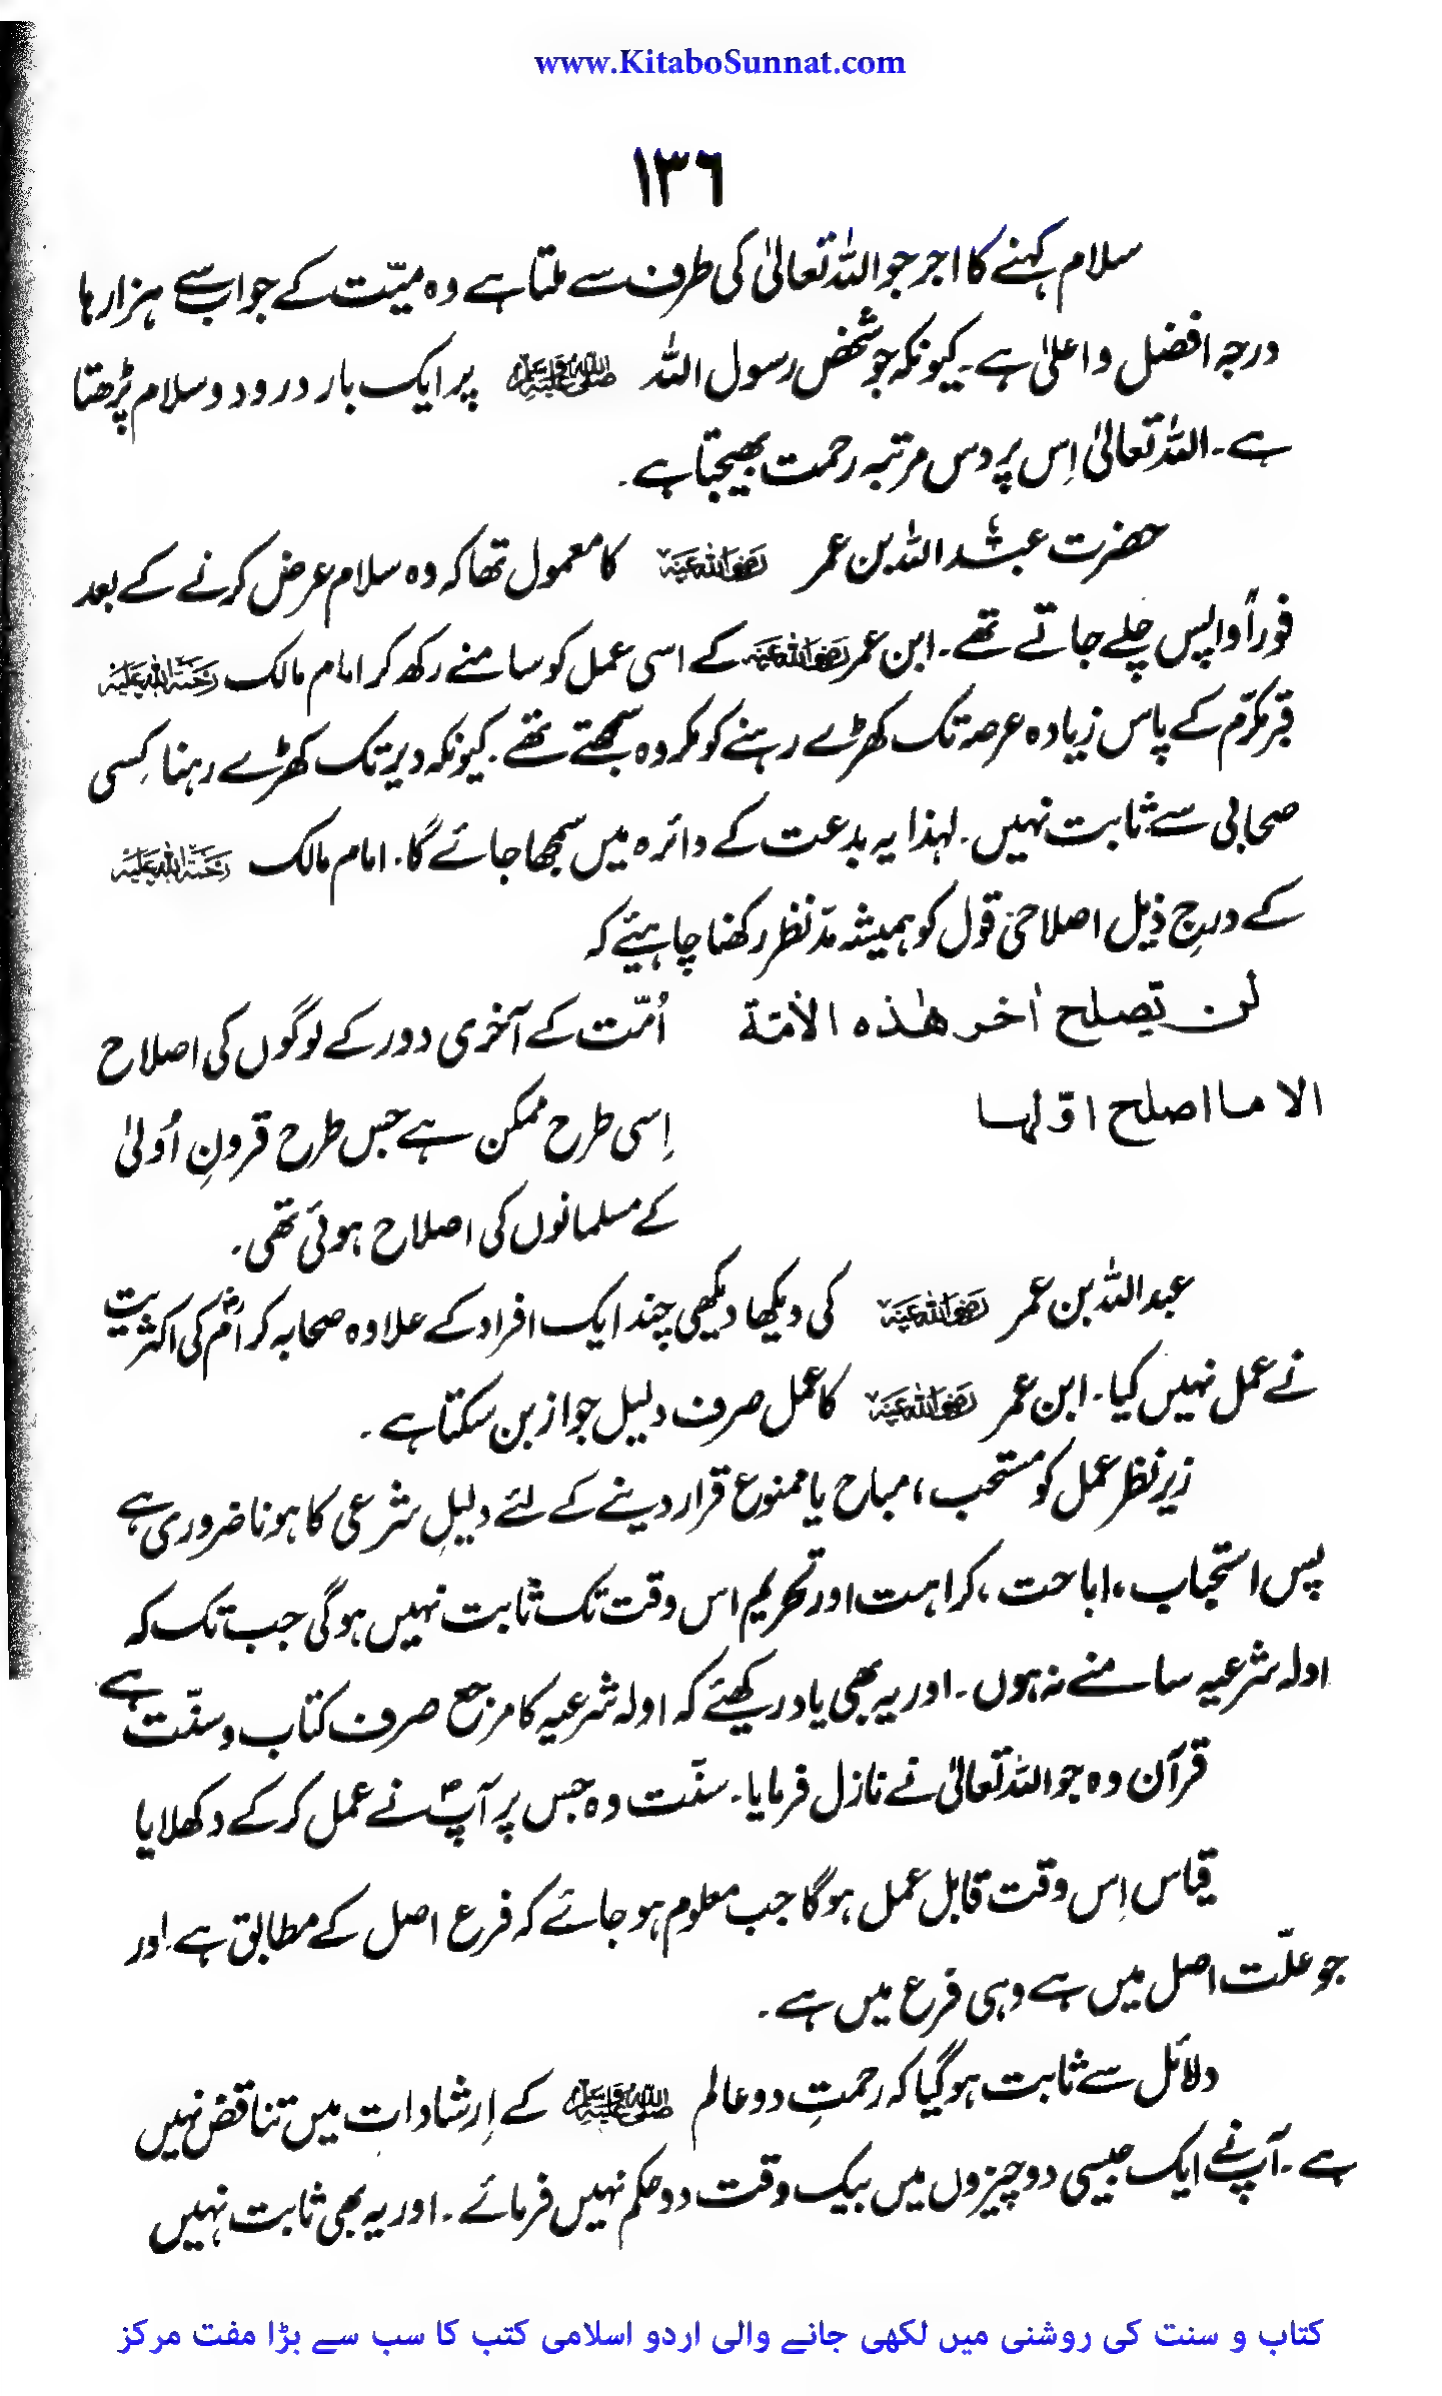 www.KitaboSunnat.com
١٣٦
سلام کہنے کا اجر جو اللہ تعالیٰ کی طرف سے ملتا ہے وہ میّت کے جواب سے ہزارہا
درجہ افضل و اعلیٰ ہے۔ کیونکہ جو شخص رسول اللہ ﷺ پر ایک بار درود و سلام پڑھتا
ہے۔ اللہ تعالیٰ اِس پر دس مرتبہ رحمت بھیجتا ہے۔
حضرت عبداللہ بن عمر رضی اللہ عنہ کا معمول تھا کہ وہ سلام عرض کرنے کے بعد
فوراً واپس چلے جاتے تھے۔ ابن عمر رضی اللہ عنہ کے اسی عمل کو سامنے رکھ کر امام مالک رحمۃ اللہ علیہ
قبر مکرّم کے پاس زیادہ عرصہ تک کھڑے رہنے کو مکروہ سمجھتے تھے۔ کیونکہ دیر تک کھڑے رہنا کِسی
صحابی سے ثابت نہیں۔ لہذا یہ بدعت کے دائرہ میں سمجھا جائے گا۔ امام مالک رحمۃ اللہ علیہ
کے درجِ ذیل اصلاحی قول کو ہمیشہ مدّ نظر رکھنا چاہیئے کہ
لن تصلح اٰخر هٰذه الأمّة
الا ما اصلح اوّلها
اُمّت کے آخری دور کے لوگوں کی اصلاح
اِسی طرح ممکن ہے جس طرح قرونِ اُولیٰ
کے مسلمانوں کی اصلاح ہوئی تھی۔
عبداللہ بن عمر رضی اللہ عنہ کی دیکھا دیکھی چند ایک افراد کے علاوہ صحابہ کرامؓ کی اکثریت
نے عمل نہیں کیا۔ ابن عمر رضی اللہ عنہ کا عمل صرف دلیل جواز بن سکتا ہے۔
زیر نظر عمل کو مستحب، مباح یا ممنوع قرار دینے کے لئے دلیلِ شرعی کا ہونا ضروری ہے
پس استحباب، اباحت، کراہت اور تحریم اس وقت تک ثابت نہیں ہو گی جب تک کہ
ادلہ شرعیہ سامنے نہ ہوں۔ اور یہ بھی یاد رکھیئے کہ ادلہ شرعیہ کا مرجع صرف کتاب و سنّت ہے
قرآن وہ جو اللہ تعالیٰ نے نازل فرمایا۔ سنّت وہ جس پر آپؐ نے عمل کر کے دکھلایا
قیاس اِس وقت قابل عمل ہو گا جب معلوم ہو جائے کہ فرع اصل کے مطابق ہے۔ اور
جو علّت اصل میں ہے وہی فرع میں ہے۔
دلائل سے ثابت ہو گیا کہ رحمتِ دو عالم ﷺ کے اِرشادات میں تناقض نہیں
ہے۔ آپؐ نے ایک جیسی دو چیزوں میں بیک وقت دو حکم نہیں فرمائے۔ اور یہ بھی ثابت نہیں
کتاب و سنت کی روشنی میں لکھی جانے والی اردو اسلامی کتب کا سب سے بڑا مفت مرکز